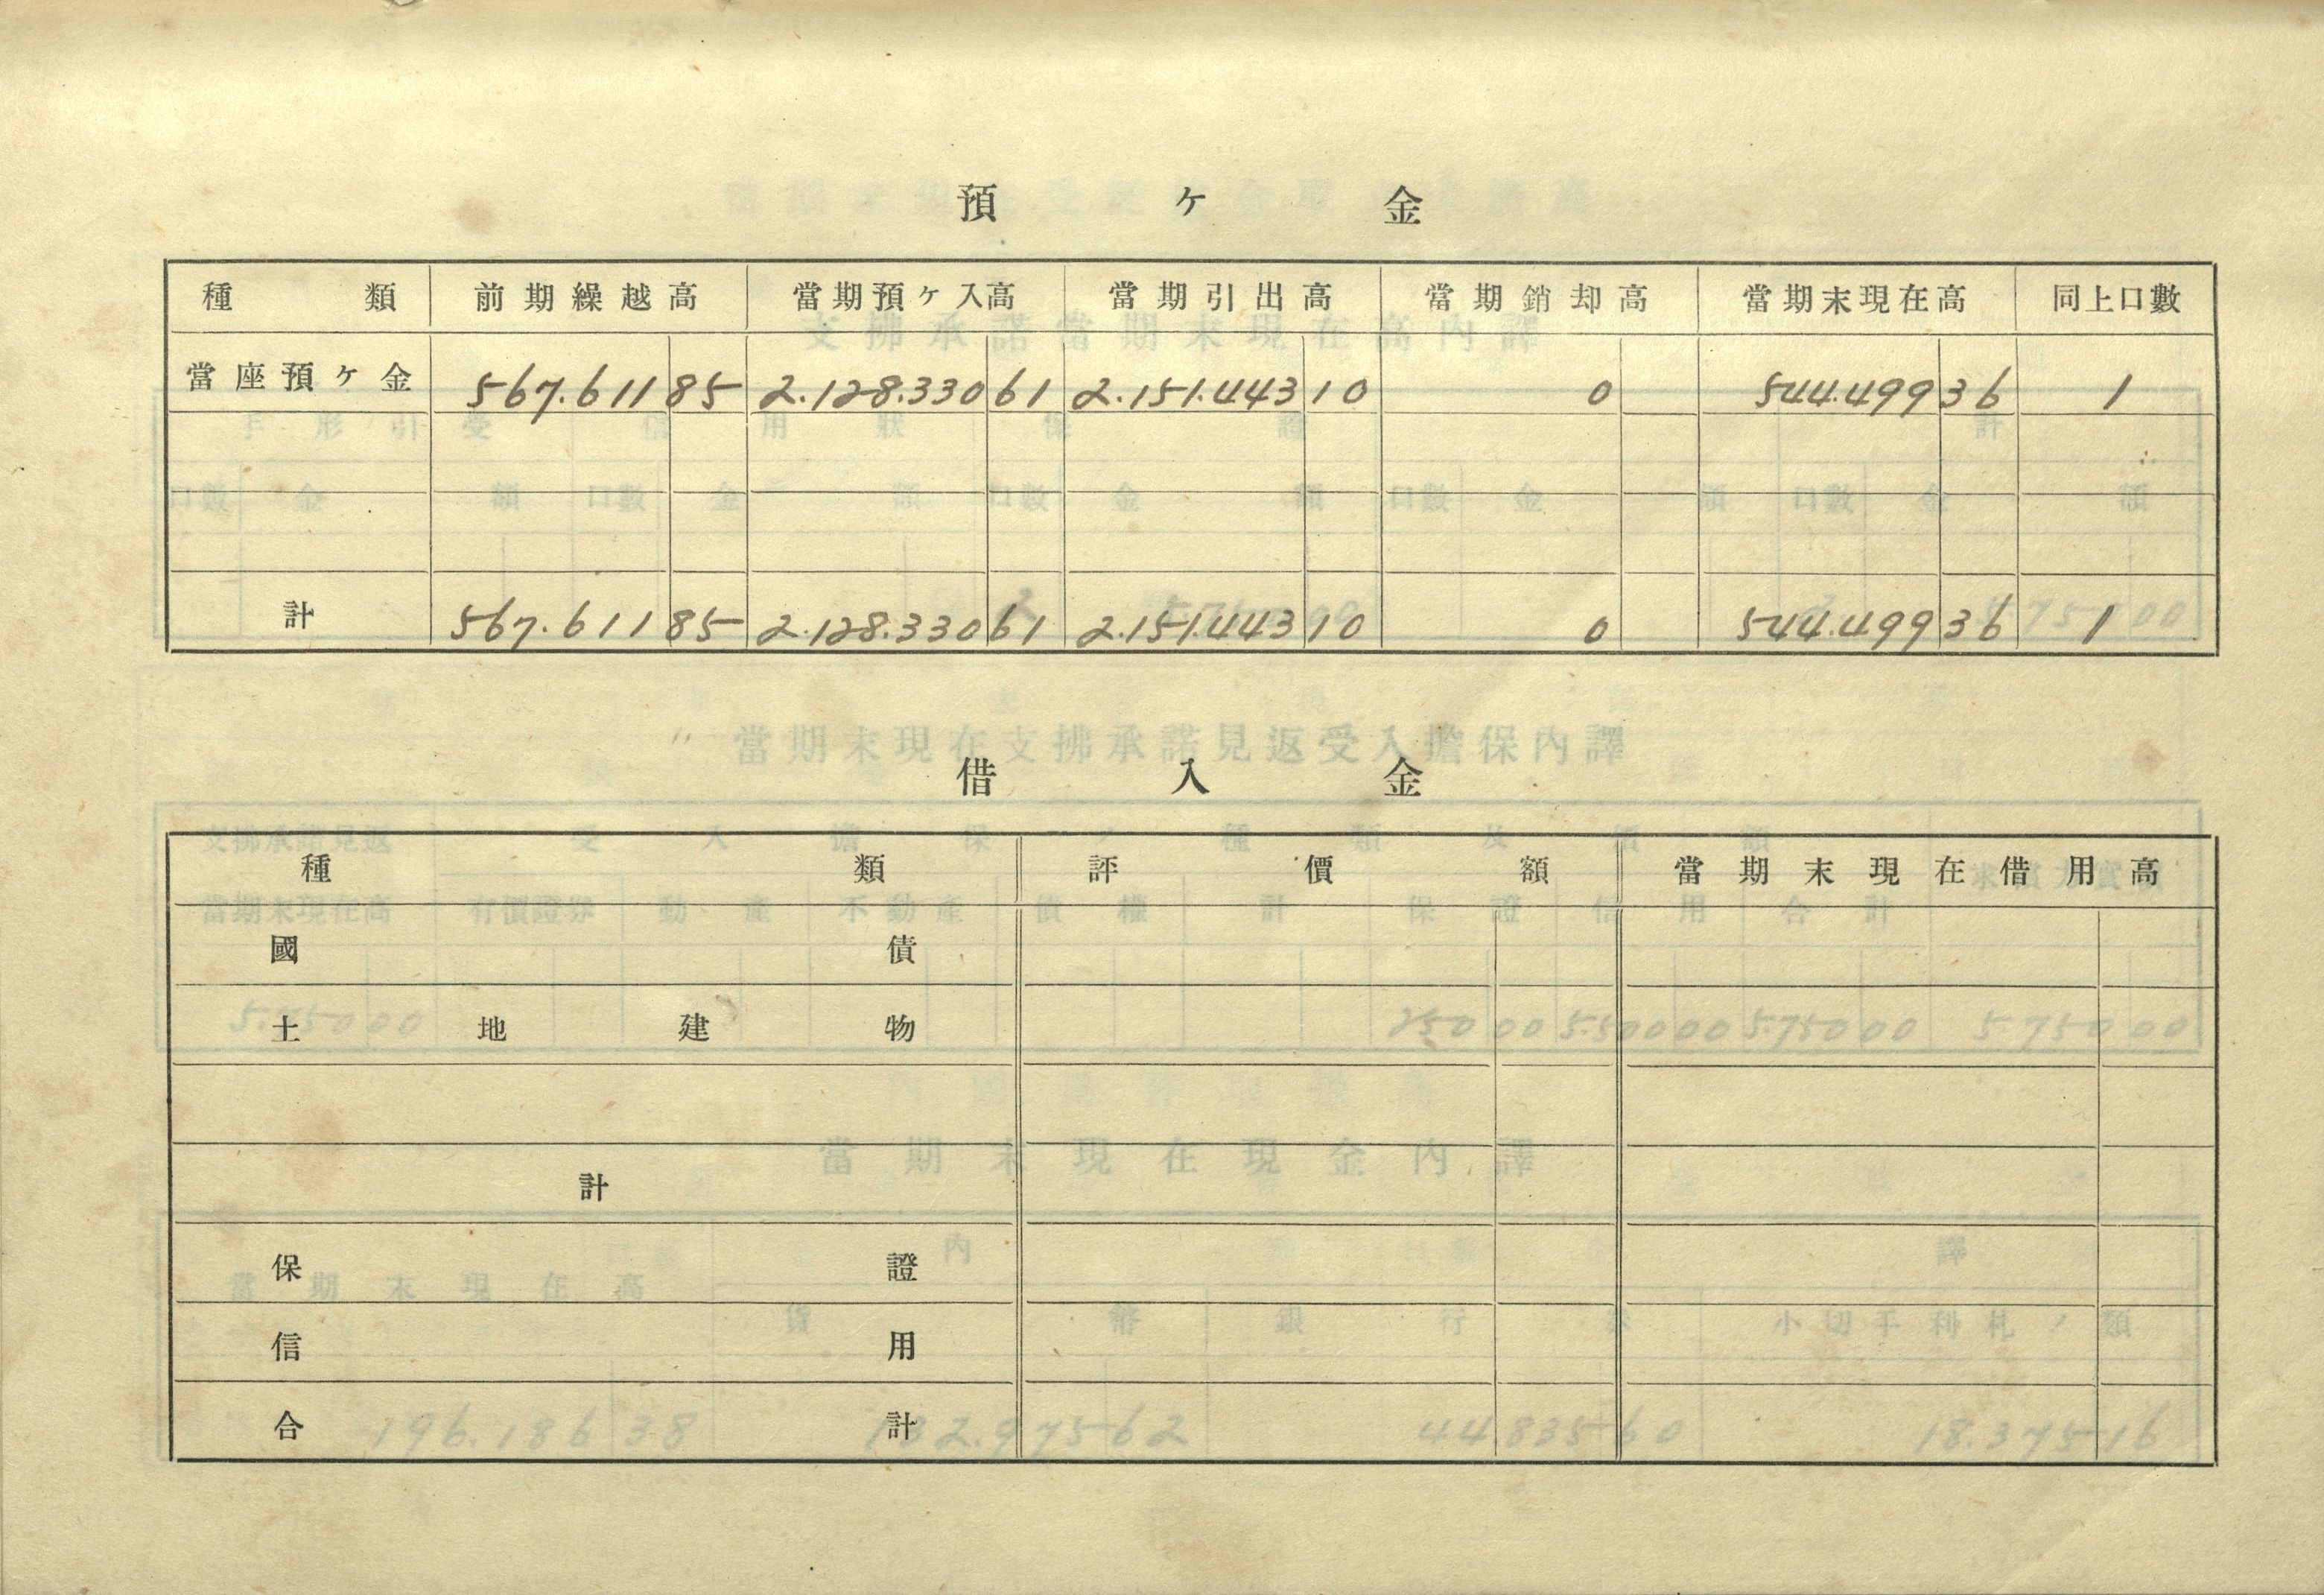 預ヶ金
種類 前期繰越高 當期預ヶ入高 當期引出高 當期銷却高 當期末現在高 同上口數
當座預ヶ金 567.611 85 2.128.330 61 2.151.443 10 0 544.499 36 1
計 567.611 85 2.128.330 61 2.151.443 10 0 544.499 36 1
借入金
種類 評價額 當期末現在借用高
國債
土地建物
計
保證
信用
合計